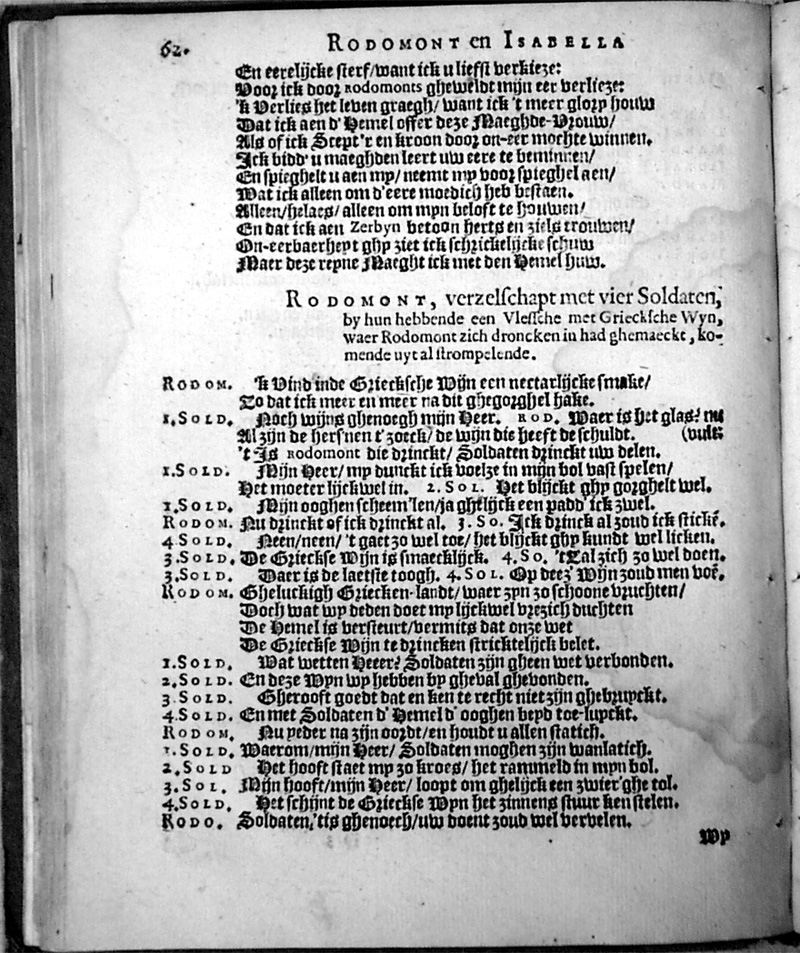 62. RODOMONT en ISABELLA
En eerelijcke sterf/want ick u liefst verkieze:
Voor ick door Rodomonts gheweldt mijn eer verlieze:
'k Verlies het leven graegh/ want ick 't meer glory houw
Dat ick aen d' Hemel offer deze Maeghde-Vrouw/
Als of ick Scept'r en kroon door on-eer mochte winnen.
Ick bidd' u maeghden leert uw eere te beminnen/
En spieghelt u aen my/ neemt my voor spieghel aen/
Wat ick alleen om d'eere moedich heb bestaen.
Alleen/helaes/ alleen om myn beloft te houwen/
En dat ick aen Zerbyn betoon herts en ziels trouwen/
On-eerbaerheyt ghy ziet ick schrickelijcke schuw
Maer deze reyne Maeght ick met den Hemel huw.
RODOMONT, verzelschapt met vier Soldaten,
by hun hebbende een Vlessche met Griecksche Wyn,
waer Rodomont zich droncken in had ghemaeckt, ko-
mende uyt al strompelende.
RODOM. 'k Vind inde Griecksche Wijn een nectarlijcke smake/
Zo dat ick meer en meer na dit ghegorghel hake.
1. SOLD. Noch wijns ghenoegh mijn Heer. ROD. Waer is het glas? nu
Al zijn de hers'nen t' zoeck/ de wijn die heeft de schuldt. (vult:
't Is Rodomont die drinckt/ Soldaten drinckt uw delen.
1. SOLD. Mijn Heer/ my dunckt ick voelze in mijn bol vast spelen/
Het moeter lijckwel in. 2. SOL. Het blijckt ghy gorghelt wel.
1. SOLD. Mijn ooghen scheem'len/ja ghelijck een padd' ick zwel.
RODOM. Nu drinckt of ick drinckt al. 3. SO. Ick drinck al zoud ick sticke̅.
4 SOLD. Neen/neen/ 't gaet zo wel toe/ het blijckt ghy kundt wel licken.
3. SOLD. De Grieckse Wijn is smaecklijck. 4. SO. 'tZal zich zo wel doen.
3. SOLD. Daer is de laetste toogh. 4. SOL. Op deez' Wijn zoud men voe̅.
RODOM. Gheluckigh Griecken-landt/ waer zyn zo schoone vruchten/
Doch wat wy deden doet my lijckwel vrezich duchten
De Hemel is versteurt/ vermits dat onze wet
De Grieckse Wijn te drincken stricktelijck belet.
1. SOLD. Wat wetten Heeer? Soldaten zijn gheen wet verbonden.
2. SOLD. En deze Wyn wy hebben by gheval ghevonden.
3 SOLD. Gherooft goedt dat en ken te recht niet zijn ghebruyckt.
4. SOLD. En met Soldaten d' Hemel d' ooghen beyd toe-luyckt.
RODOM. Nu yeder na zijn oordt/ en houdt u allen statich.
1. SOLD. Waerom/mijn Heer/ Soldaten moghen zijn wanlatich.
2. SOLD Het hooft staet my zo kroes/ het rammeld in myn bol.
3. SOL. Mijn hooft/mijn Heer/ loopt om ghelijck een zwier'ghe tol.
4. SOLD. Het schijnt de Grieckse Wyn het zinnens stuur ken stelen.
RODO. Soldaten,'tis ghenoech/ uw doent zoud wel vervelen.
Wy